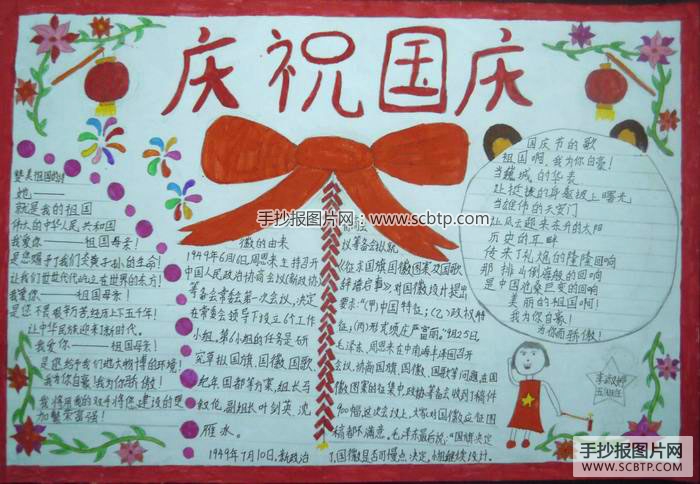 庆祝国庆
赞美祖国的诗
她———
就是我的祖国
伟大的中华人民共和国
我爱你———祖国母亲！
是您赐予我们炎黄子孙的生命！
让我们世世代代屹立在世界的东方！
我爱你———祖国母亲！
是您不畏艰辛苦经历上下五千年！
让中华民族迎来新时代。
我爱你———祖国母亲！
是您给予我们地大物博的环境！
我为你自豪！我为你骄傲！
我将用我的双手将您建设的更
加繁荣富强！
徽的由来
1949年6月15日，周恩来主持召开
中国人民政治协商会议（新政协）
筹备会常委会第一次会议，决定
在常委会领导下设立6个工作
小组，第6小组的任务是研
究草拟国旗、国徽、国歌、
纪年、国都等方案，组长马
叙伦，副组长叶剑英、沈
雁冰。
1949年7月10日，新政治
议筹备会拟就
《征求国旗国徽图案及国歌
辞谱启事》，对国徽设计提出
要求：“(甲)中国特征；(乙)政权特
征；(丙)形式须庄严富丽。”9月25日，
毛泽东、周恩来在中南海丰泽园召开
会议，协商国旗、国徽、国歌等问题，在国
徽图案的征集中，政协筹备会收到了稿件
900幅，这次会议上，大家对国徽应征图
稿都不满意。毛泽东最后说：“国旗决定
了，国徽是否可慢点决定，小组继续设计，
国庆节的歌
祖国啊，我为你自豪！
当巍峨的华表
让挺拔的身躯披上曙光
当雄伟的天安门
让风云迎来东升的太阳
历史的耳畔
传来了礼炮的隆隆回响
那排山倒海般的回响
是中国沧桑巨变的回响
美丽的祖国啊！
我为你自豪！
为你而骄傲！
五班
手抄报图片网：www.scbtp.com
手抄报图片网
WWW.SCBTP.COM